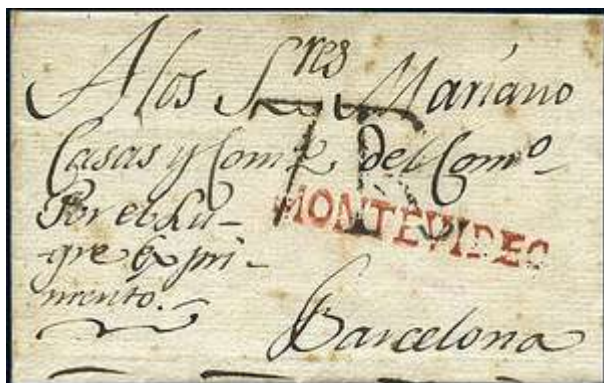 A los S.res Mariano
Casas y Comp.a del Com.o
Por el Lu-
gre Expri-
mento.
7R
MONTEVIDEO
Barcelona